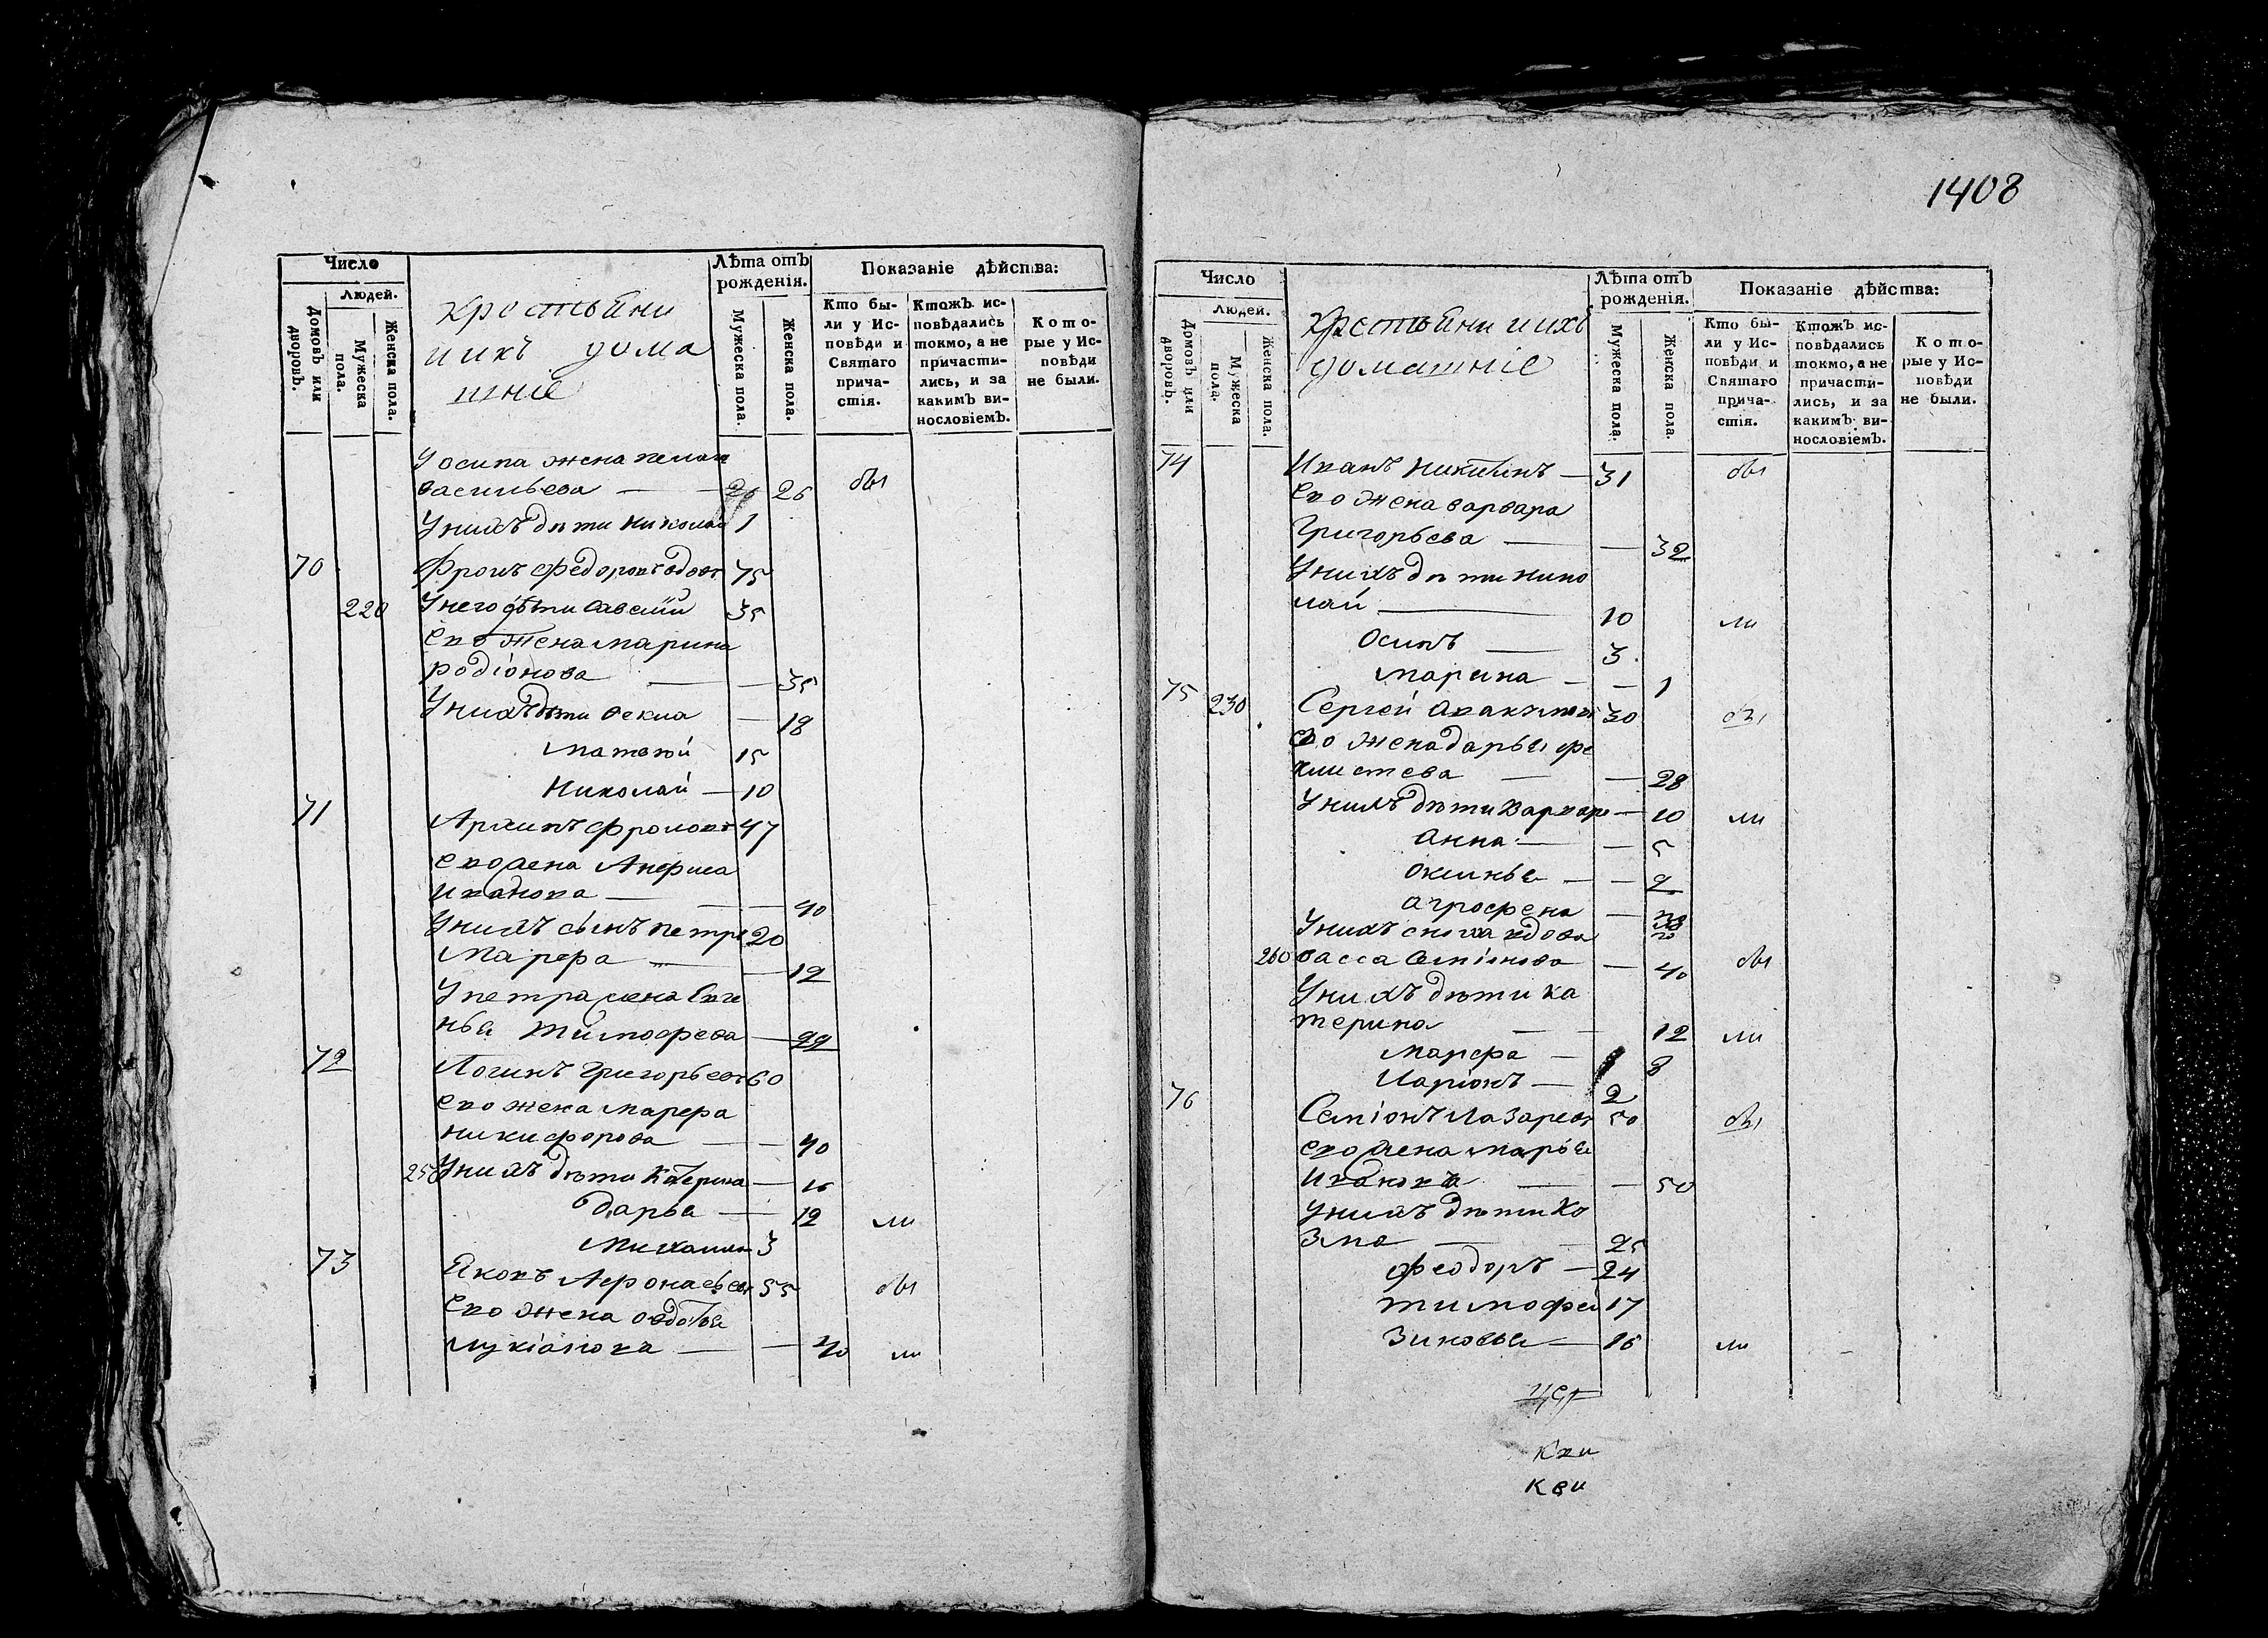 1408
Число
Людей.
Домовъ или дворовъ.
Мужеска пола.
Женска пола.
крестьяни
и ихъ дома
шніе
Лѣта отъ рожденія.
Мужеска пола.
Женска пола.
Показаніе дѣйства:
Кто бы-
ли у Ис-
повѣди и
Святаго
прича-
стія.
Ктожъ ис-
повѣдались
токмо, а не
причасти-
лись, и за
какимъ ви-
нословіемъ.
Кото-
рые у Ис-
повѣди
не были.
У осипа жена пелаге
васильева — 26 26 бы
У нихъ дѣти николай 1
70 Фролъ Федоровъ вдовъ 75
220 У него дѣти савелій 35
Его жена марина
родіонова — — 35
У нихъ дѣти Фекла — 18
матвѣй 15
Николай — 10
71 Архипъ Фроловъ 47
Его жена Анфиса
Иванова — — 40
У нихъ сынъ петръ 20
Марфа — — 12
У петра жена Евге
нья тимофева — 22
72 Логинъ Григорьевъ 60
Его жена марфа
никифорова — — 40
250 У нихъ дѣти Катерина — 16
дарья — 12 ли
михаила 3
73 Яковъ Афонасьевъ 55 бы
Его жена овдотья
лукіанова — — 40 ли
Число
Людей.
Домовъ или дворовъ.
Мужеска пола.
Женска пола.
Крестьяни и ихъ
домашніе
Лѣта отъ рожденія.
Мужеска пола.
Женска пола.
Показаніе дѣйства:
Кто бы-
ли у Ис-
повѣди и
Святаго
прича-
стія.
Ктожъ ис-
повѣдались
токмо, а не
причасти-
лись, и за
какимъ ви-
нословіемъ.
Кото-
рые у Ис-
повѣди
не были.
74 Иванъ Никитинъ — 31 бы
Его жена варвара
Григорьева — — 32
У нихъ дѣти нико
лай — 10 ли
Осипъ — 3
марина — — 1
75 230 Сергей 30 бы
Его жена дарья фе
клистева — — 28
У нихъ дѣти Варвара — 10 ли
Анна — — 5
Оксинья — — 2
агрофена —
У нихъ сноха вдова
260 васса Семіонова — 40 бы
У нихъ дѣти ка
терина — — 12 ли
марфа — 8
Иаріонъ — 2
76 Семіонъ Лазаревъ 50 бы
Его жена марья
Иванова — — 50
У нихъ дѣти Ко
зма — — 25
феодоръ — 24
тимофей 17
Зиновья — 16 ли
кви
кви